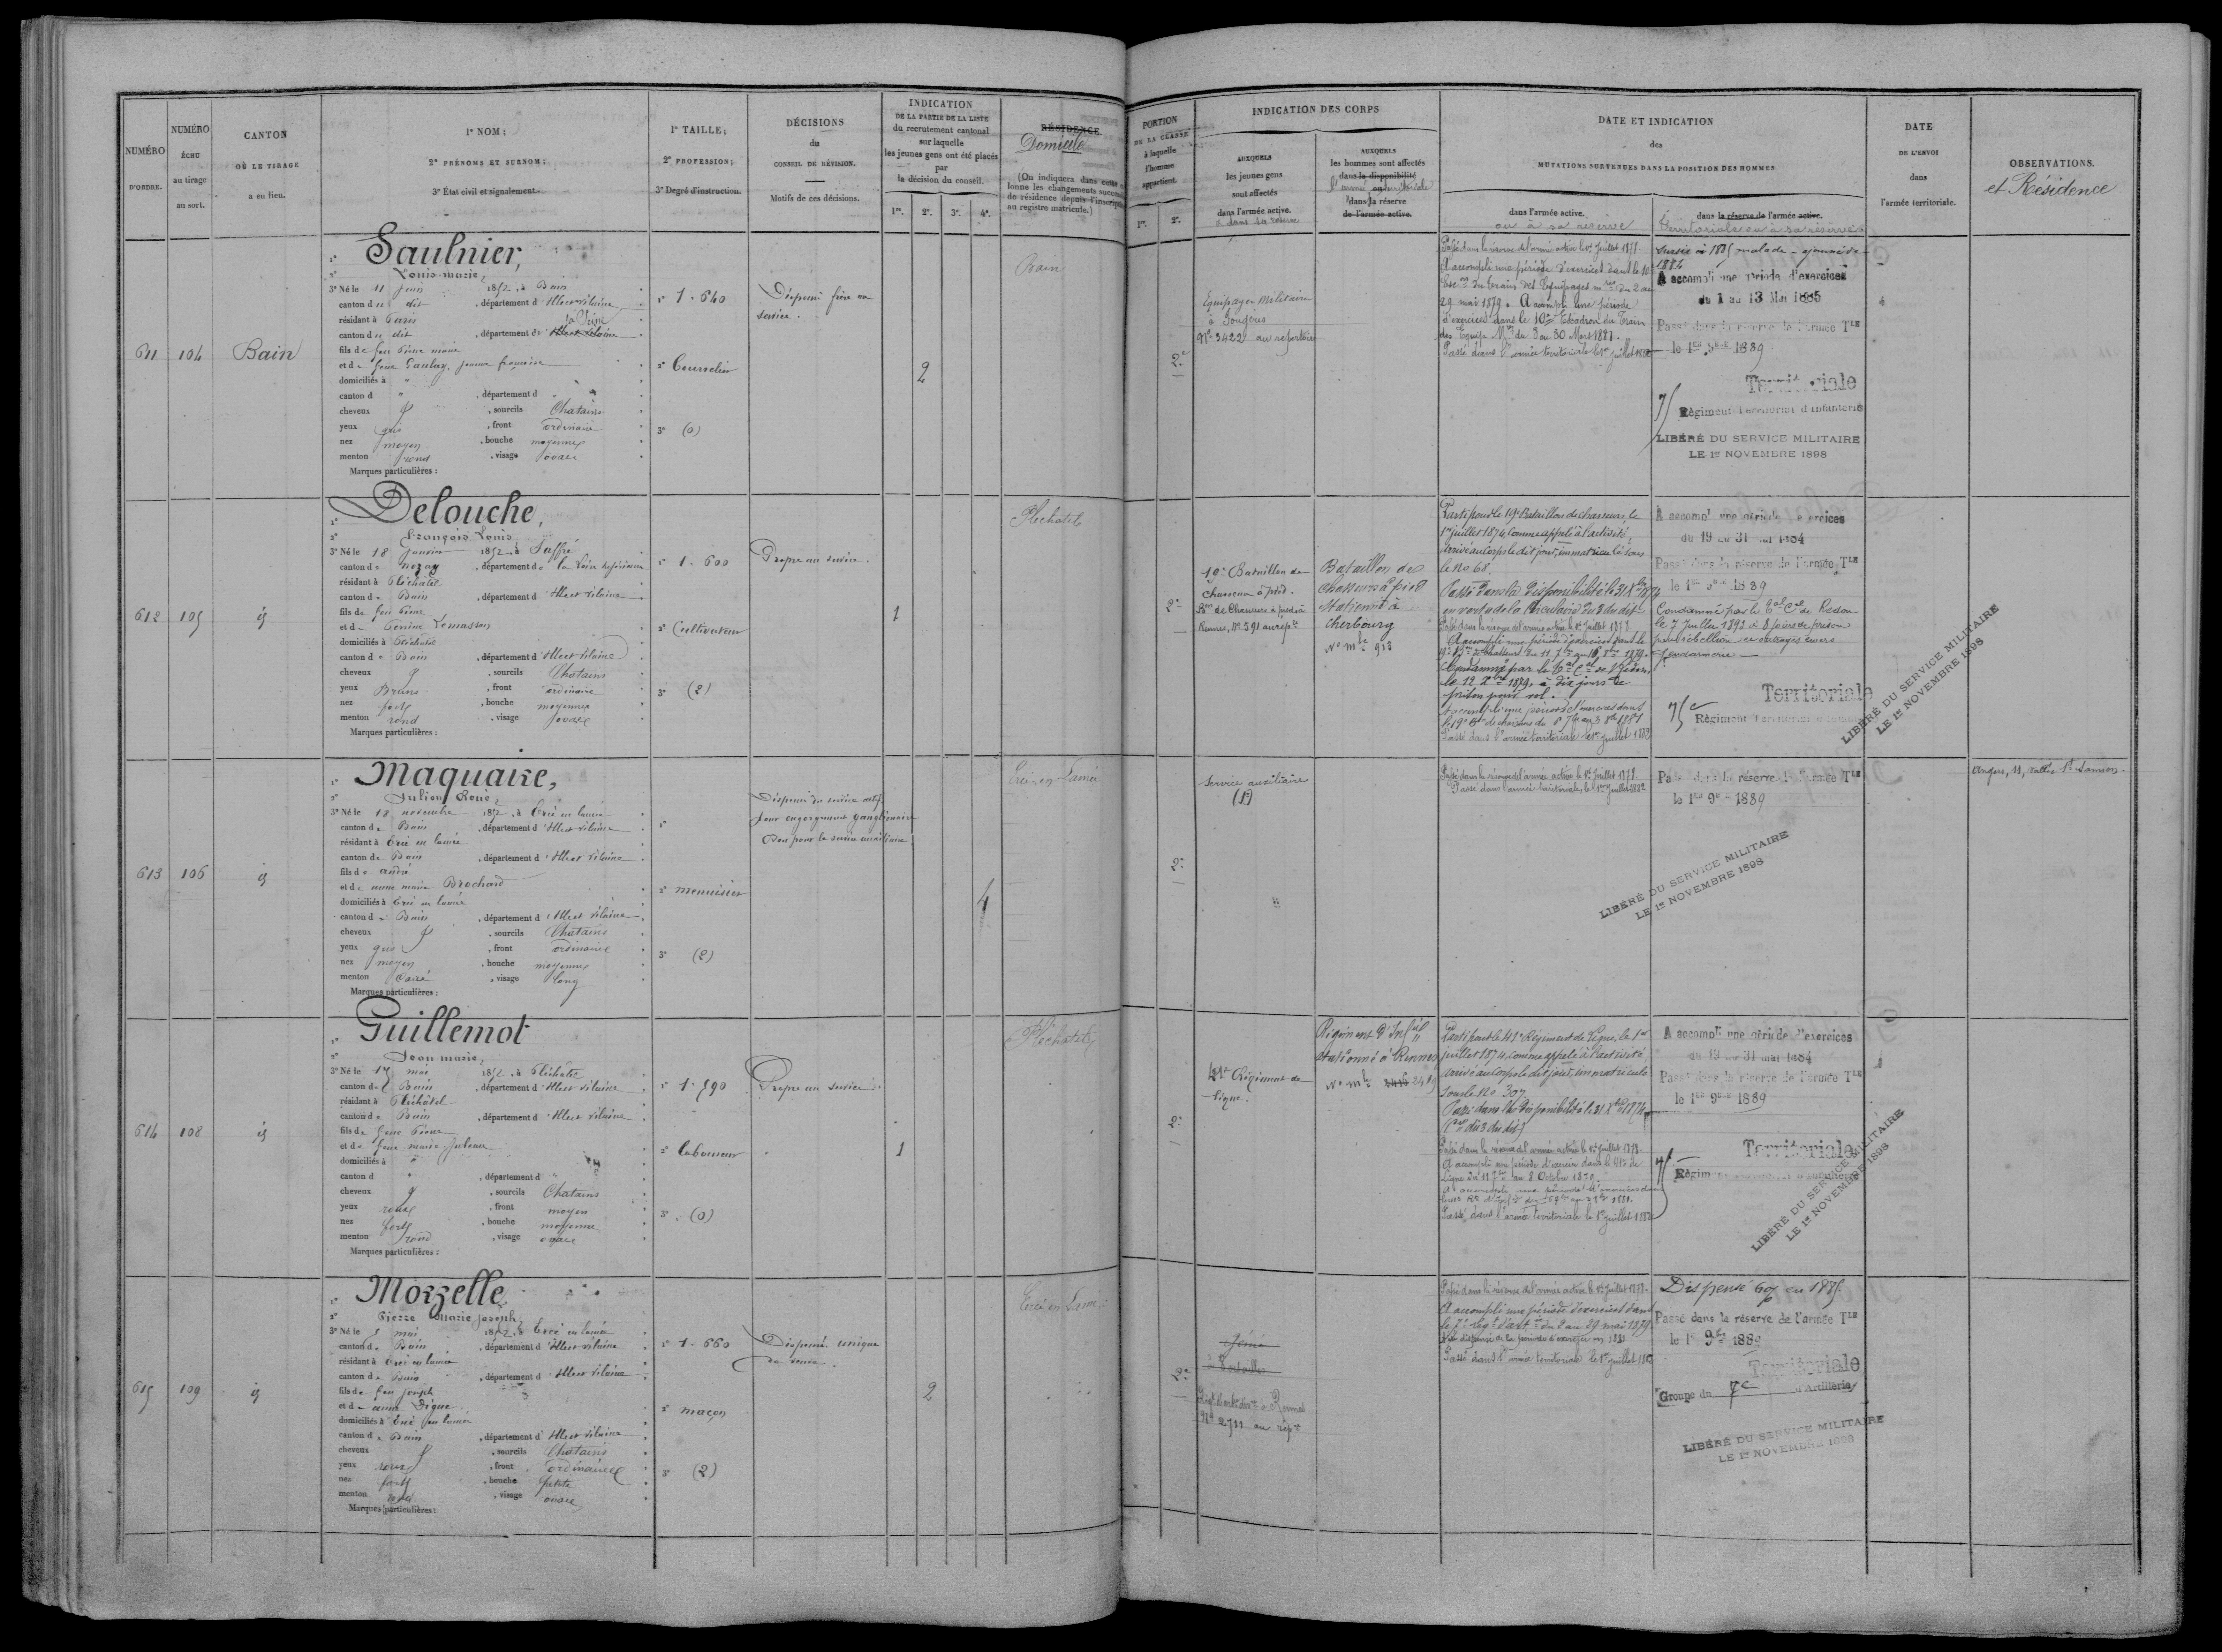 NUMÉRO
D'ORDRE.
NUMÉRO
ÉCHU
au tirage
au sort.
CANTON
OÙ LE TIRAGE
a eu lieu.
1° NOM;
2° PRÉNOMS ET SURNOM;
3° État civil et signalement.
1° TAILLE;
2° PROFESSION;
3° Degré d'instruction.
DÉCISIONS
du
CONSEIL DE RÉVISION.
Motifs de ces décisions.
INDICATION
DE LA PARTIE DE LA LISTE
du recrutement cantonal
sur laquelle
les jeunes gens ont été placés
par
la décision du conseil.
1re. 2e. 3e. 4e.
RÉSIDENCE
Domicile
(On indiquera dans cette
lonne les changements
de résidence depuis
au registre matricule.)
PORTION
DE LA CLASSE
à laquelle
l'homme
appartient.
1re. 2e.
INDICATION DES CORPS
AUXQUELS
les jeunes gens
sont affectés
dans l'armée active.
AUXQUELS
les hommes sont affectés
dans la disponibilité
dans la réserve
de l'armée active.
DATE ET INDICATION
des
MUTATIONS SURVENUES DANS LA POSITION DES HOMMES
dans l'armée active.
ou à sa réserve
dans la réserve de l'armée active.
territoriale ou à sa réserve
DATE
DE L'ENVOI
dans
l'armée territoriale.
OBSERVATIONS.
et Résidence
611
104
Bain
1° Saulnier,
2° Louis marie,
3° Né le 11 Juin 1852, à Bain
canton du dit, département d'Ille et Vilaine
résidant à Paris
canton du dit, département de la Seine
fils de feu Pierre marie
domiciliés à "
canton d ", département d "
cheveux, sourcils Chatains
yeux gris, front ordinaire
nez moyen, bouche moyenne
menton rond, visage ovale
Marques particulières :
1° 1.640
3° (0)
Dispensé frère au
service.
2
Bain
2e
Equipages Militaires
à Fougères
No 3422 au répertoire
Passé dans la réserve de l'armée active le 1er Juillet 1878
A accompli une période d'exercices dans le 10e
29 mai 1879. A accompli une période
d'exercices dans le 10e Escadron du Train
Passé dans l'armée territoriale le 1er Juillet 1882
1884
A accompli une période d'exercices
du 1 au 13 Mai 1885
Passé dans la réserve de l'armée Tle
le 1er 9bre 1889
Territoriale
75
Régiment Territorial d'Infanterie
LIBÉRÉ DU SERVICE MILITAIRE
LE 1er NOVEMBRE 1898
612
105
id
1° Delouche,
2° François Louis
3° Né le 18 Janvier 1852, à Saffré
canton de Nozay, département de la Loire Inférieure
résidant à Pléchâtel
canton de Bain, département d'Ille et Vilaine
fils de feu Pierre
et de Perrine Lemasson
domiciliés à Pléchâtel
canton de Bain, département d'Ille et Vilaine
cheveux, sourcils Chatains
yeux Bruns, front ordinaire
nez fort, bouche moyenne
menton rond, visage ovale
Marques particulières :
1° 1.600
2° Cultivateur
3° (2)
Propre au service.
1
Plechatel
2e
19e Bataillon de
chasseurs à pied.
Rennes, No 591 au rép.re
Bataillon de
chasseurs à pied
Stationné à
Cherbourg
No mle 913
Parti pour le 19e Bataillon de chasseurs, le
1er juillet 1874, comme appelé à l'activité,
Arrivé au Corps le dit jour, immatriculé sous
le No 68.
Passé dans la disponibilité le 31 Xbre 1874
en vertu de la Circulaire du 3 du dit
Passé dans la réserve de l'armée active le 1er Juillet 1878
A accompli une période d'exercices dans le
Condamné par le Tal Cel de Redon,
le 12 Xbre 1879, à dix jours de
prison pour vol.
Passé dans l'armée territoriale le 1er juillet 1882
A accompli une période d'exercices
du 19 au 31 mai 1884
Passé dans la réserve de l'armée Tle
le 1er 9bre 1889
Condamné par le Tal Cel de Redon
le 7 Juillet 1893 à 8 jours de prison
pour rébellion et outrages envers
gendarmerie
Territoriale
75e
Régiment Territorial d'Infanterie
LIBÉRÉ DU SERVICE MILITAIRE
LE 1er NOVEMBRE 1898
613
106
id
1° Maquaire,
2° Julien René,
3° Né le 18 novembre 1852, à Ercé en lamée
canton de Bain, département d'Ille et Vilaine
résidant à Ercé en lamée
canton de Bain, département d'Ille et Vilaine
fils de André
et de anne marie Brochard
domiciliés à Ercé en lamée
canton de Bain, département d'Ille et Vilaine
cheveux, sourcils Chatains
yeux gris, front ordinaire
nez moyen, bouche moyenne
menton carré, visage long
Marques particulières :
2° menuisier
3° (2)
Dispensé du service actif
pour engorgement ganglionnaire
Bon pour le service auxiliaire
4
Ercé-en-Lamée
2e
Service auxiliaire
Passé dans la réserve de l'armée active le 1er Juillet 1878
Passé dans l'armée territoriale, le 1er Juillet 1882
Passé dans la réserve de l'armée Tle
le 1er 9bre 1889
LIBÉRÉ DU SERVICE MILITAIRE
LE 1er NOVEMBRE 1898
614
108
id
1° Guillemot
2° Jean marie,
3° Né le 17 mai 1852, à Pléchâtel
canton de Bain, département d'Ille et Vilaine
résidant à Pléchâtel
canton de Bain, département d'Ille et Vilaine
fils de feu Pierre
domiciliés à "
canton d ", département d "
cheveux, sourcils Chatains
yeux roux, front moyen
nez fort, bouche moyenne
menton rond, visage ovale
Marques particulières :
1° 1.590
2° Laboureur
3° (0)
Propre au service.
1
Plechatel
2e
41e Régiment de
ligne.
Régiment d'Infie
Stationné à Rennes
No mle 2489
Parti pour le 41e Régiment de Ligne, le 1er
juillet 1874, comme appelé à l'activité
arrivé au Corps le dit jour, immatriculé
sous le No 307.
Passé dans la disponibilité le 31 Xbre 1874
Passé dans la réserve de l'armée active le 1er Juillet 1878
A accompli une période d'exercices dans le 41e de
Ligne du 11 7bre au 8 Octobre 1879.
Passé dans l'armée territoriale le 1er juillet 1882
A accompli une période d'exercices
du 19 au 31 mai 1884
Passé dans la réserve de l'armée Tle
le 1er 9bre 1889
Territoriale
LIBÉRÉ DU SERVICE MILITAIRE
LE 1er NOVEMBRE 1898
615
109
id
1° Morzelle,
2° Pierre Marie Joseph,
3° Né le 5 mai 1852, à Ercé en lamée
canton de Bain, département d'Ille et Vilaine
résidant à Ercé en lamée
canton de Bain, département d'Ille et Vilaine
fils de feu Joseph
domiciliés à Ercé en lamée
canton de Bain, département d'Ille et Vilaine
cheveux, sourcils Chatains
yeux roux, front ordinaire
nez fort, bouche petite
menton rond, visage ovale
Marques particulières :
1° 1.660
2° maçon
3° (2)
Dispensé unique
de veuve.
2
Ercé en Lamée
2e
Génie
à Versailles
No 2711 au rép.re
Passé dans la réserve de l'armée active le 1er Juillet 1878.
A accompli une période d'exercices dans
le 7e Régt d'Artie du 2 au 29 mai 1879
Passé dans l'armée territoriale le 1er juillet 1882
Dispensé en 1885.
Passé dans la réserve de l'armée Tle
le 1er 9bre 1889
Territoriale
Groupe du 7e d'Artillerie
LIBÉRÉ DU SERVICE MILITAIRE
LE 1er NOVEMBRE 1898